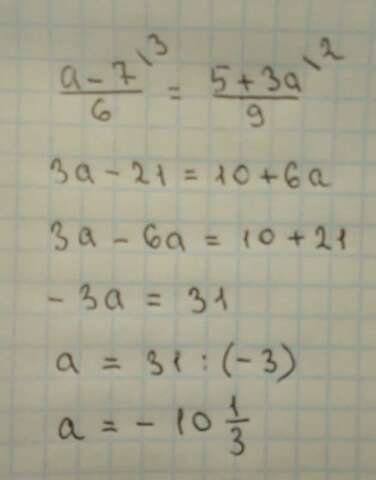 (a - 7)/6 \3 = (5 + 3a)/9 \2
3a - 21 = 10 + 6a
3a - 6a = 10 + 21
- 3a = 31
a = 31 : (-3)
a = - 10 1/3